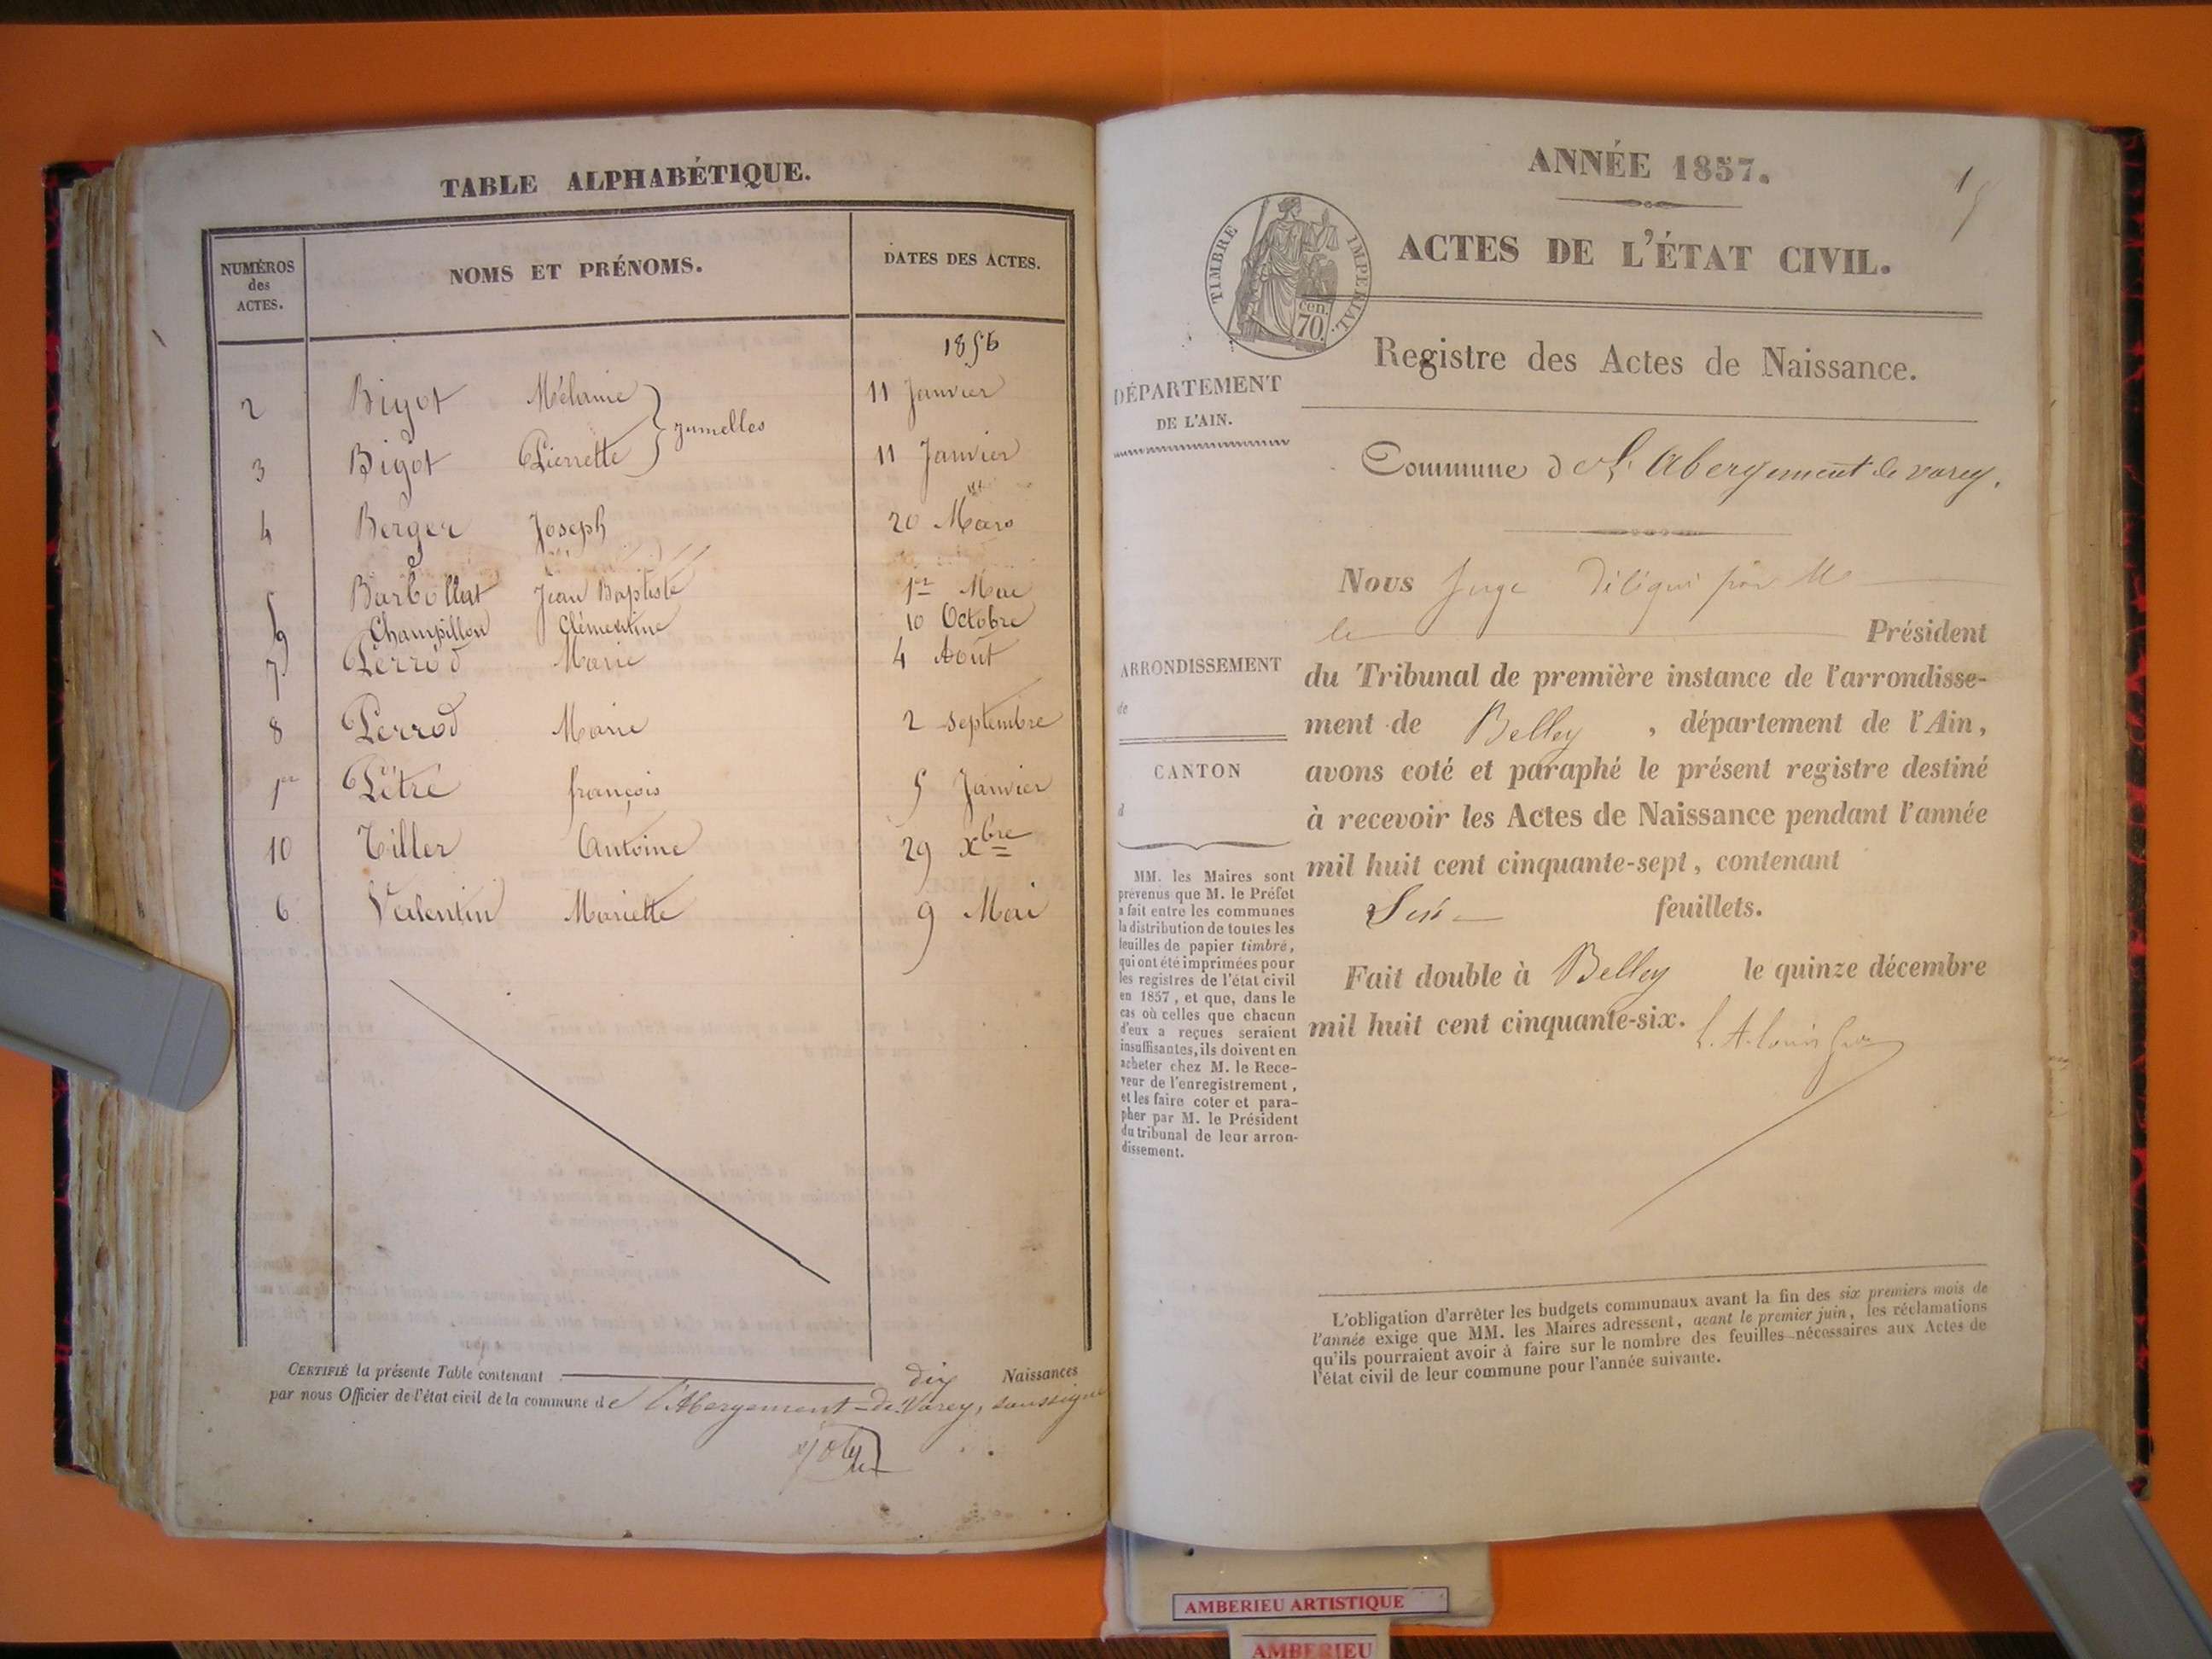 TABLE ALPHABÉTIQUE.
NUMÉROS des ACTES. NOMS ET PRÉNOMS. DATES DES ACTES.
1856
2 Bigot Mélanie 11 Janvier
jumelles
3 Bigot Pierrette 11 Janvier
4 Berger Joseph 20 Mars
5 Barbollat Jean Baptiste 1er Mai
9 Champillon Clémentine 10 Octobre
7 Perrod Marie 4 Août
8 Perrod Marie 2 Septembre
1er Pétré françois 5 Janvier
10 Tiller Antoine 29 xbre
6 Valentin Mariette 9 Mai
CERTIFIÉ la présente Table contenant dix Naissances
par nous Officier de l'état civil de la commune de l'Abergement-de-Varey, soussigné
ANNÉE 1857.
1
TIMBRE IMPÉRIAL.
cen. 70.
ACTES DE L'ÉTAT CIVIL.
Registre des Actes de Naissance.
DÉPARTEMENT
DE L'AIN.
Commune de L'Abergement de varey.
Nous Juge Délégué par Mr
le Président
ARRONDISSEMENT
de
du Tribunal de première instance de l'arrondisse-
ment de Belley , département de l'Ain,
CANTON
d
avons coté et paraphé le présent registre destiné
à recevoir les Actes de Naissance pendant l'année
mil huit cent cinquante-sept, contenant
Six feuillets.
Fait double à Belley le quinze décembre
mil huit cent cinquante-six.
MM. les Maires sont
prévenus que M. le Préfet
a fait entre les communes
la distribution de toutes les
feuilles de papier timbré,
qui ont été imprimées pour
les registres de l'état civil
en 1857, et que, dans le
cas où celles que chacun
d'eux a reçues seraient
insuffisantes, ils doivent en
acheter chez M. le Rece-
veur de l'enregistrement,
et les faire coter et para-
pher par M. le Président
du tribunal de leur arron-
dissement.
L'obligation d'arrêter les budgets communaux avant la fin des six premiers mois de
l'année exige que MM. les Maires adressent, avant le premier juin, les réclamations
qu'ils pourraient avoir à faire sur le nombre des feuilles nécessaires aux Actes de
l'état civil de leur commune pour l'année suivante.
AMBERIEU ARTISTIQUE
AMBERIEU